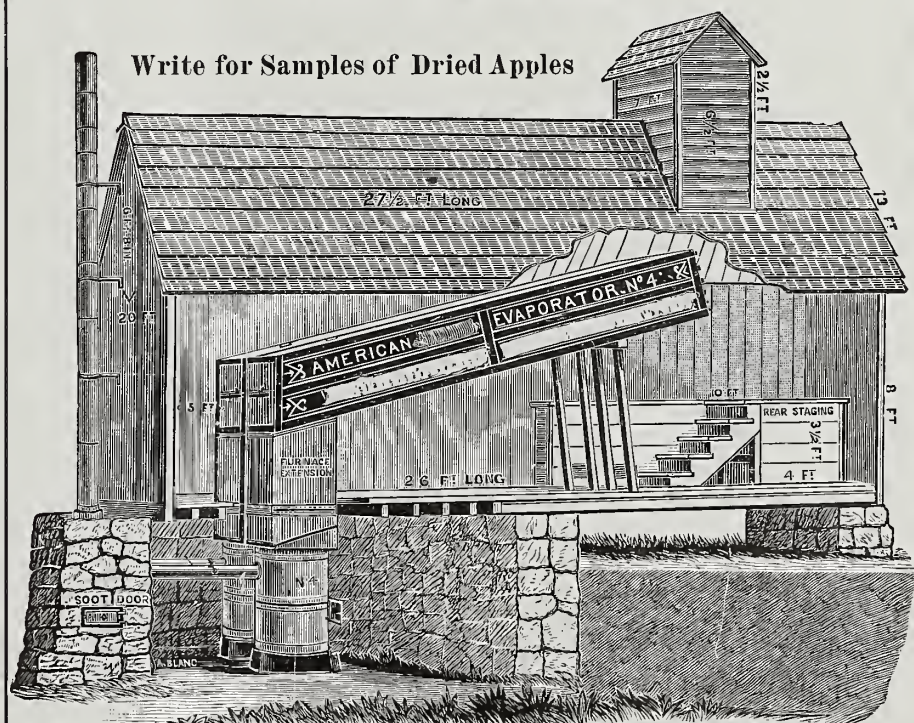 Write for Samples of Dried Apples
2½ FT
7 FT
6½ FT
27½ FT LONG
13 FT
20 FT
AMERICAN EVAPORATOR Nº 4
8 FT
10 FT
REAR STAGING
3½ FT
4 FT
FURNACE
EXTENSION
26 FT LONG
Nº 4
SOOT DOOR
A. BLANC